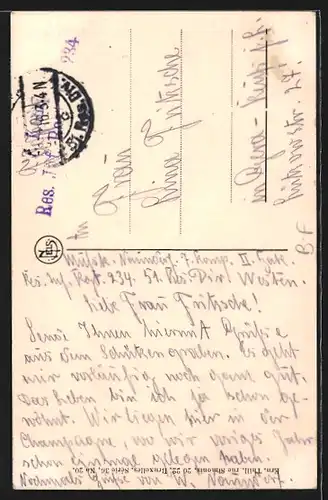 234
Res. Inf.
An
Frau
Lina Fritzsche
in Gera-
27.
B F
NELS
7. Komp. II.
Res. Inf. Rgt. 234. 51. Res. Div. Westen.
Liebe Frau Fritzsche!
Sende Ihnen hiermit Grüße
aus dem Schützengraben. Es geht
mir vorläufig noch ganz gut.
Das Leben bin ich ja schon ge-
wöhnt. Wir liegen hier in der
Champagne, wo wir voriges Jahr
schon einmal gelegen haben.
Nochmals Grüße von W.
Ern. Thill, rue Simonis, 20, 22, Bruxelles. Série 36, No 20.